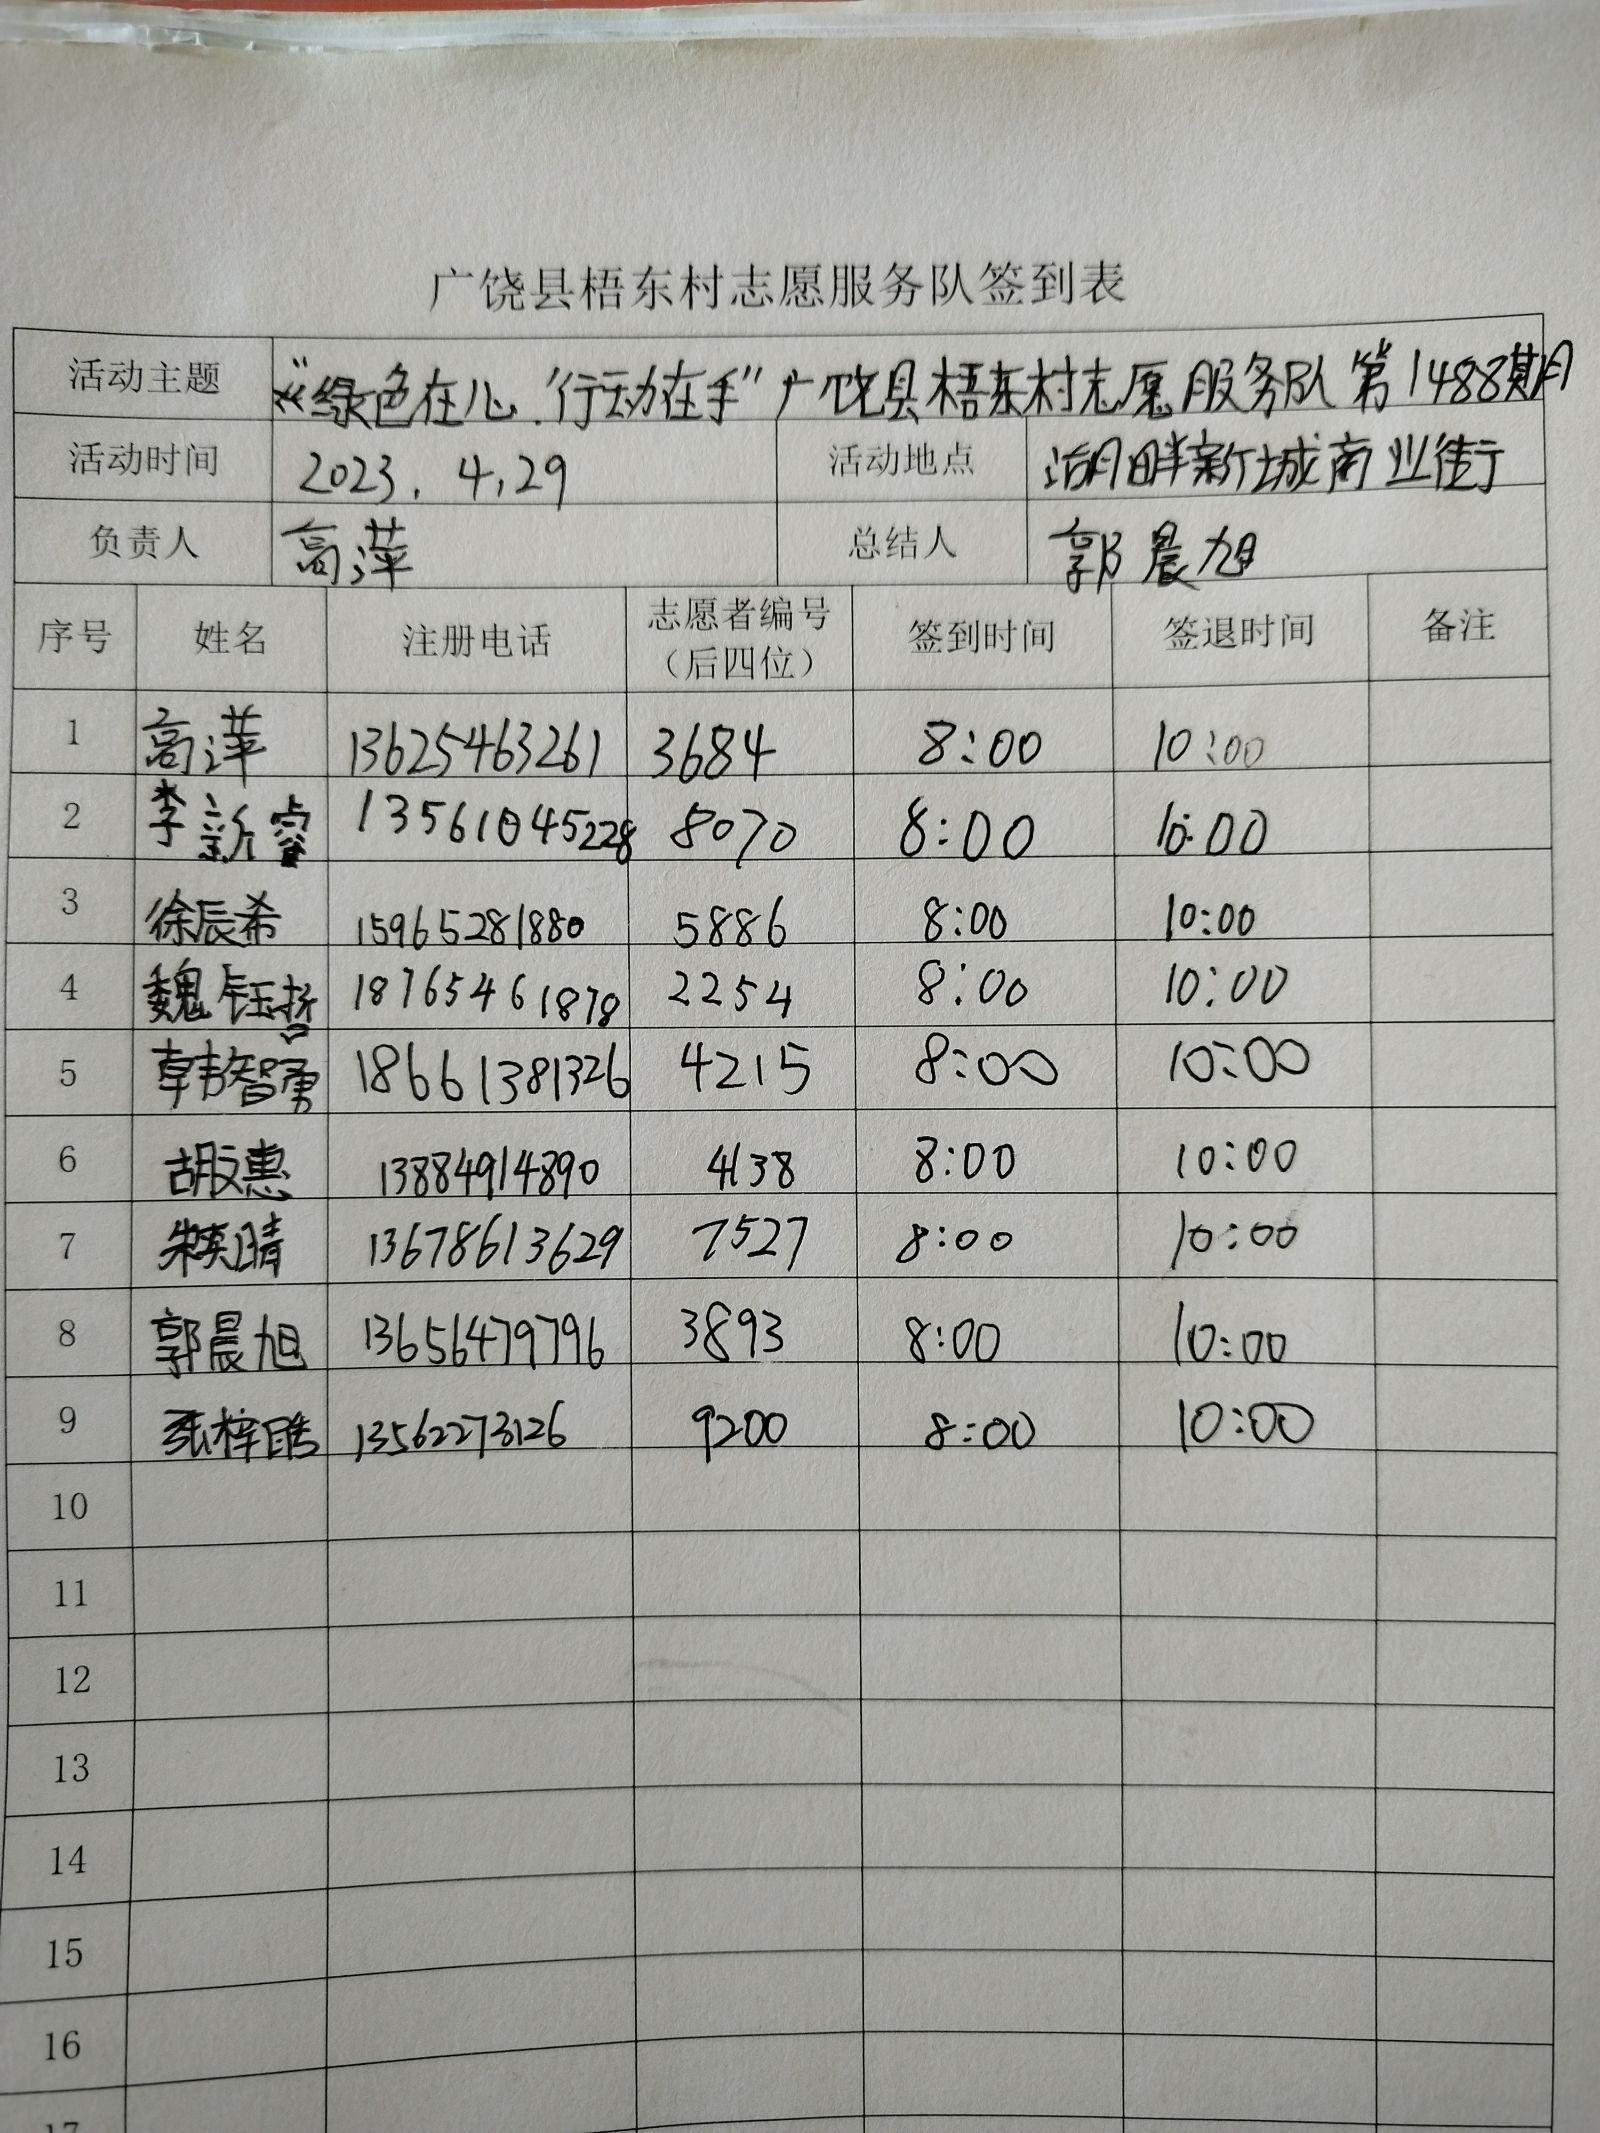 广饶县梧东村志愿服务队签到表
活动主题 “绿色在心，行动在手”广饶县梧东村志愿服务队第1488期
活动时间 2023.4.29 活动地点 湖畔新城商业街
负责人 高萍 总结人 郭晨旭
序号 姓名 注册电话 志愿者编号（后四位） 签到时间 签退时间 备注
1 高萍 13625463261 3684 8:00 10:00
2 李新睿 13561045228 8070 8:00 10:00
3 徐辰希 15965281880 5886 8:00 10:00
4 魏钰哲 18765461878 2254 8:00 10:00
5 韩智勇 18661381326 4215 8:00 10:00
6 胡文惠 13884914890 4138 8:00 10:00
7 朱奕晴 13678613629 7527 8:00 10:00
8 郭晨旭 13656479796 3893 8:00 10:00
9 张梓皓 13562273126 9200 8:00 10:00
10
11
12
13
14
15
16
17